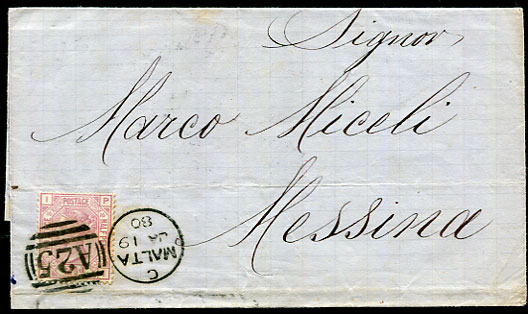 Signor
Marco Miceli
Messina
I POSTAGE P
HALF
A25
C
MALTA
JA 19
80